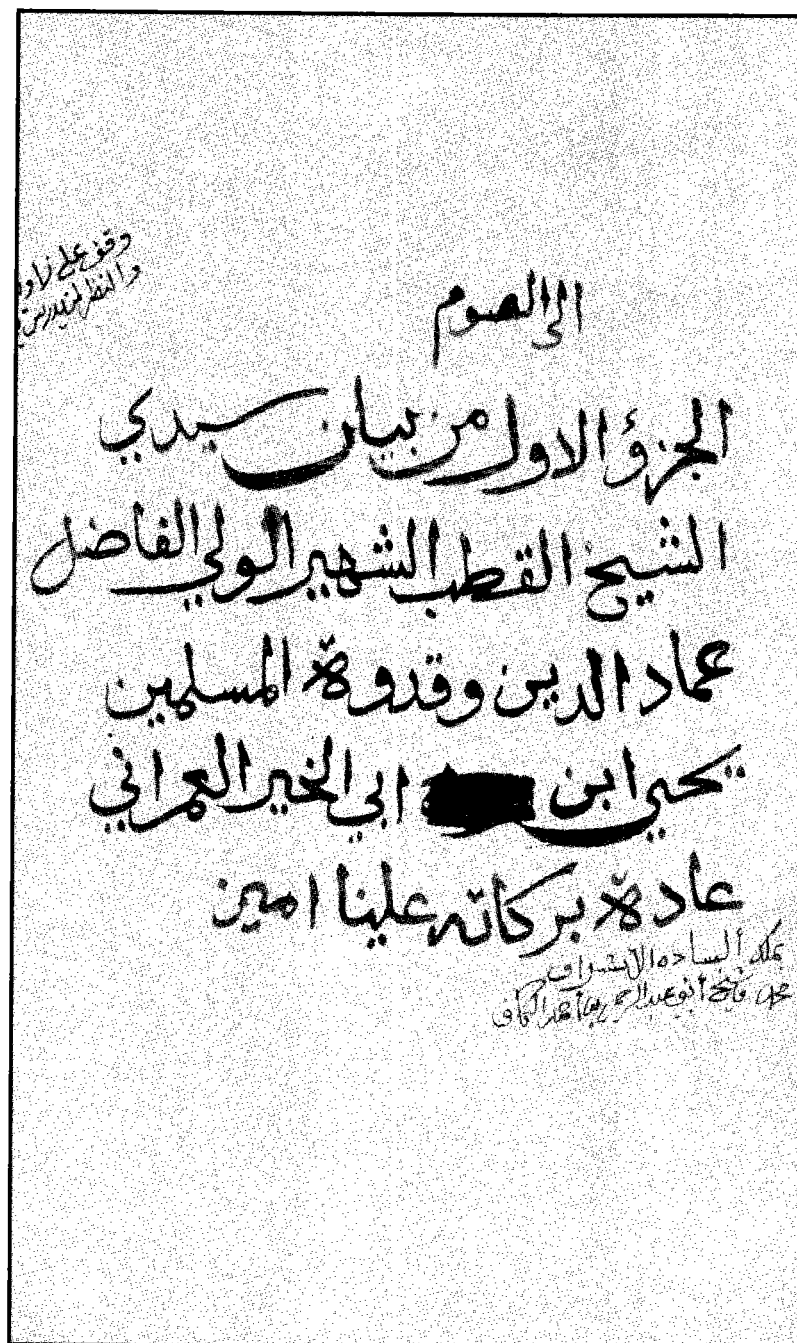 وقف على زاو
والنظر لمن يدرس
الى الصوم
الجزؤ الاول من بيان سيدي
الشيخ القطب الشهير الولي الفاضل
عماد الدين وقدوة المسلمين
يحيى ابن ابي الخير العمراني
عادة بركاته علينا امين
بملك السادة الاشراف
أبو عبد الرحمن بن أحمد الكاف